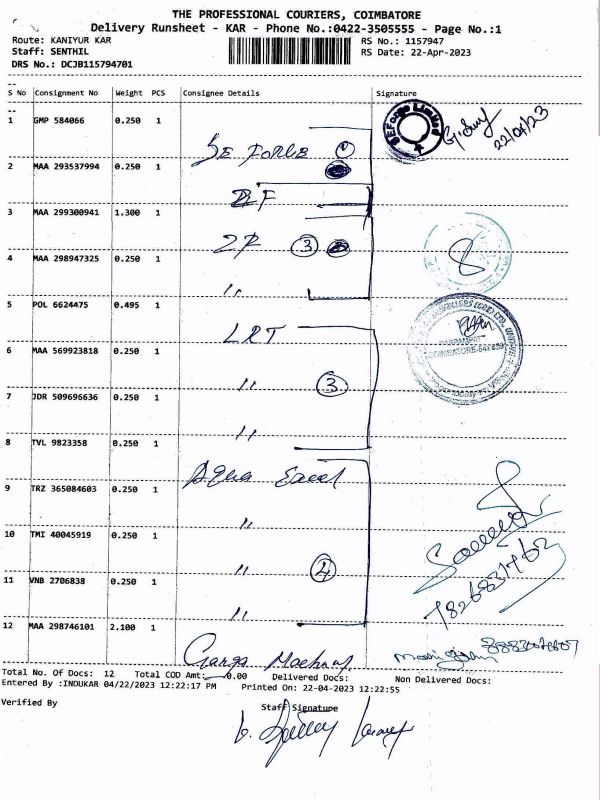 THE PROFESSIONAL COURIERS, COIMBATORE
Delivery Runsheet - KAR - Phone No.:0422-3505555 - Page No.:1
Route: KANIYUR KAR RS No.: 1157947
Staff: SENTHIL RS Date: 22-Apr-2023
DRS No.: DCJB115794701
S No Consignment No Weight PCS Consignee Details Signature
1 GMP 584066 0.250 1 SE Forge 1 SEForge Limited 22/04/23
2 MAA 293537994 0.250 1
3 MAA 299300941 1.300 1 ZF 3
4 MAA 298947325 0.250 1 "
5 POL 6624475 0.495 1 LRT
6 MAA 569923818 0.250 1 " 3 COIMBATORE
7 JDR 509696636 0.250 1 "
8 TVL 9823358 0.250 1 Aqua Excel
9 TRZ 365084603 0.250 1 "
10 TMI 40045919 0.250 1 " 4
11 VNB 2706838 0.250 1 "
12 MAA 298746101 2.100 1 Ganga
Total No. Of Docs: 12 Total COD Amt: 0.00 Delivered Docs: Non Delivered Docs:
Entered By :INDUKAR 04/22/2023 12:22:17 PM Printed On: 22-04-2023 12:22:55
Verified By Staff Signature